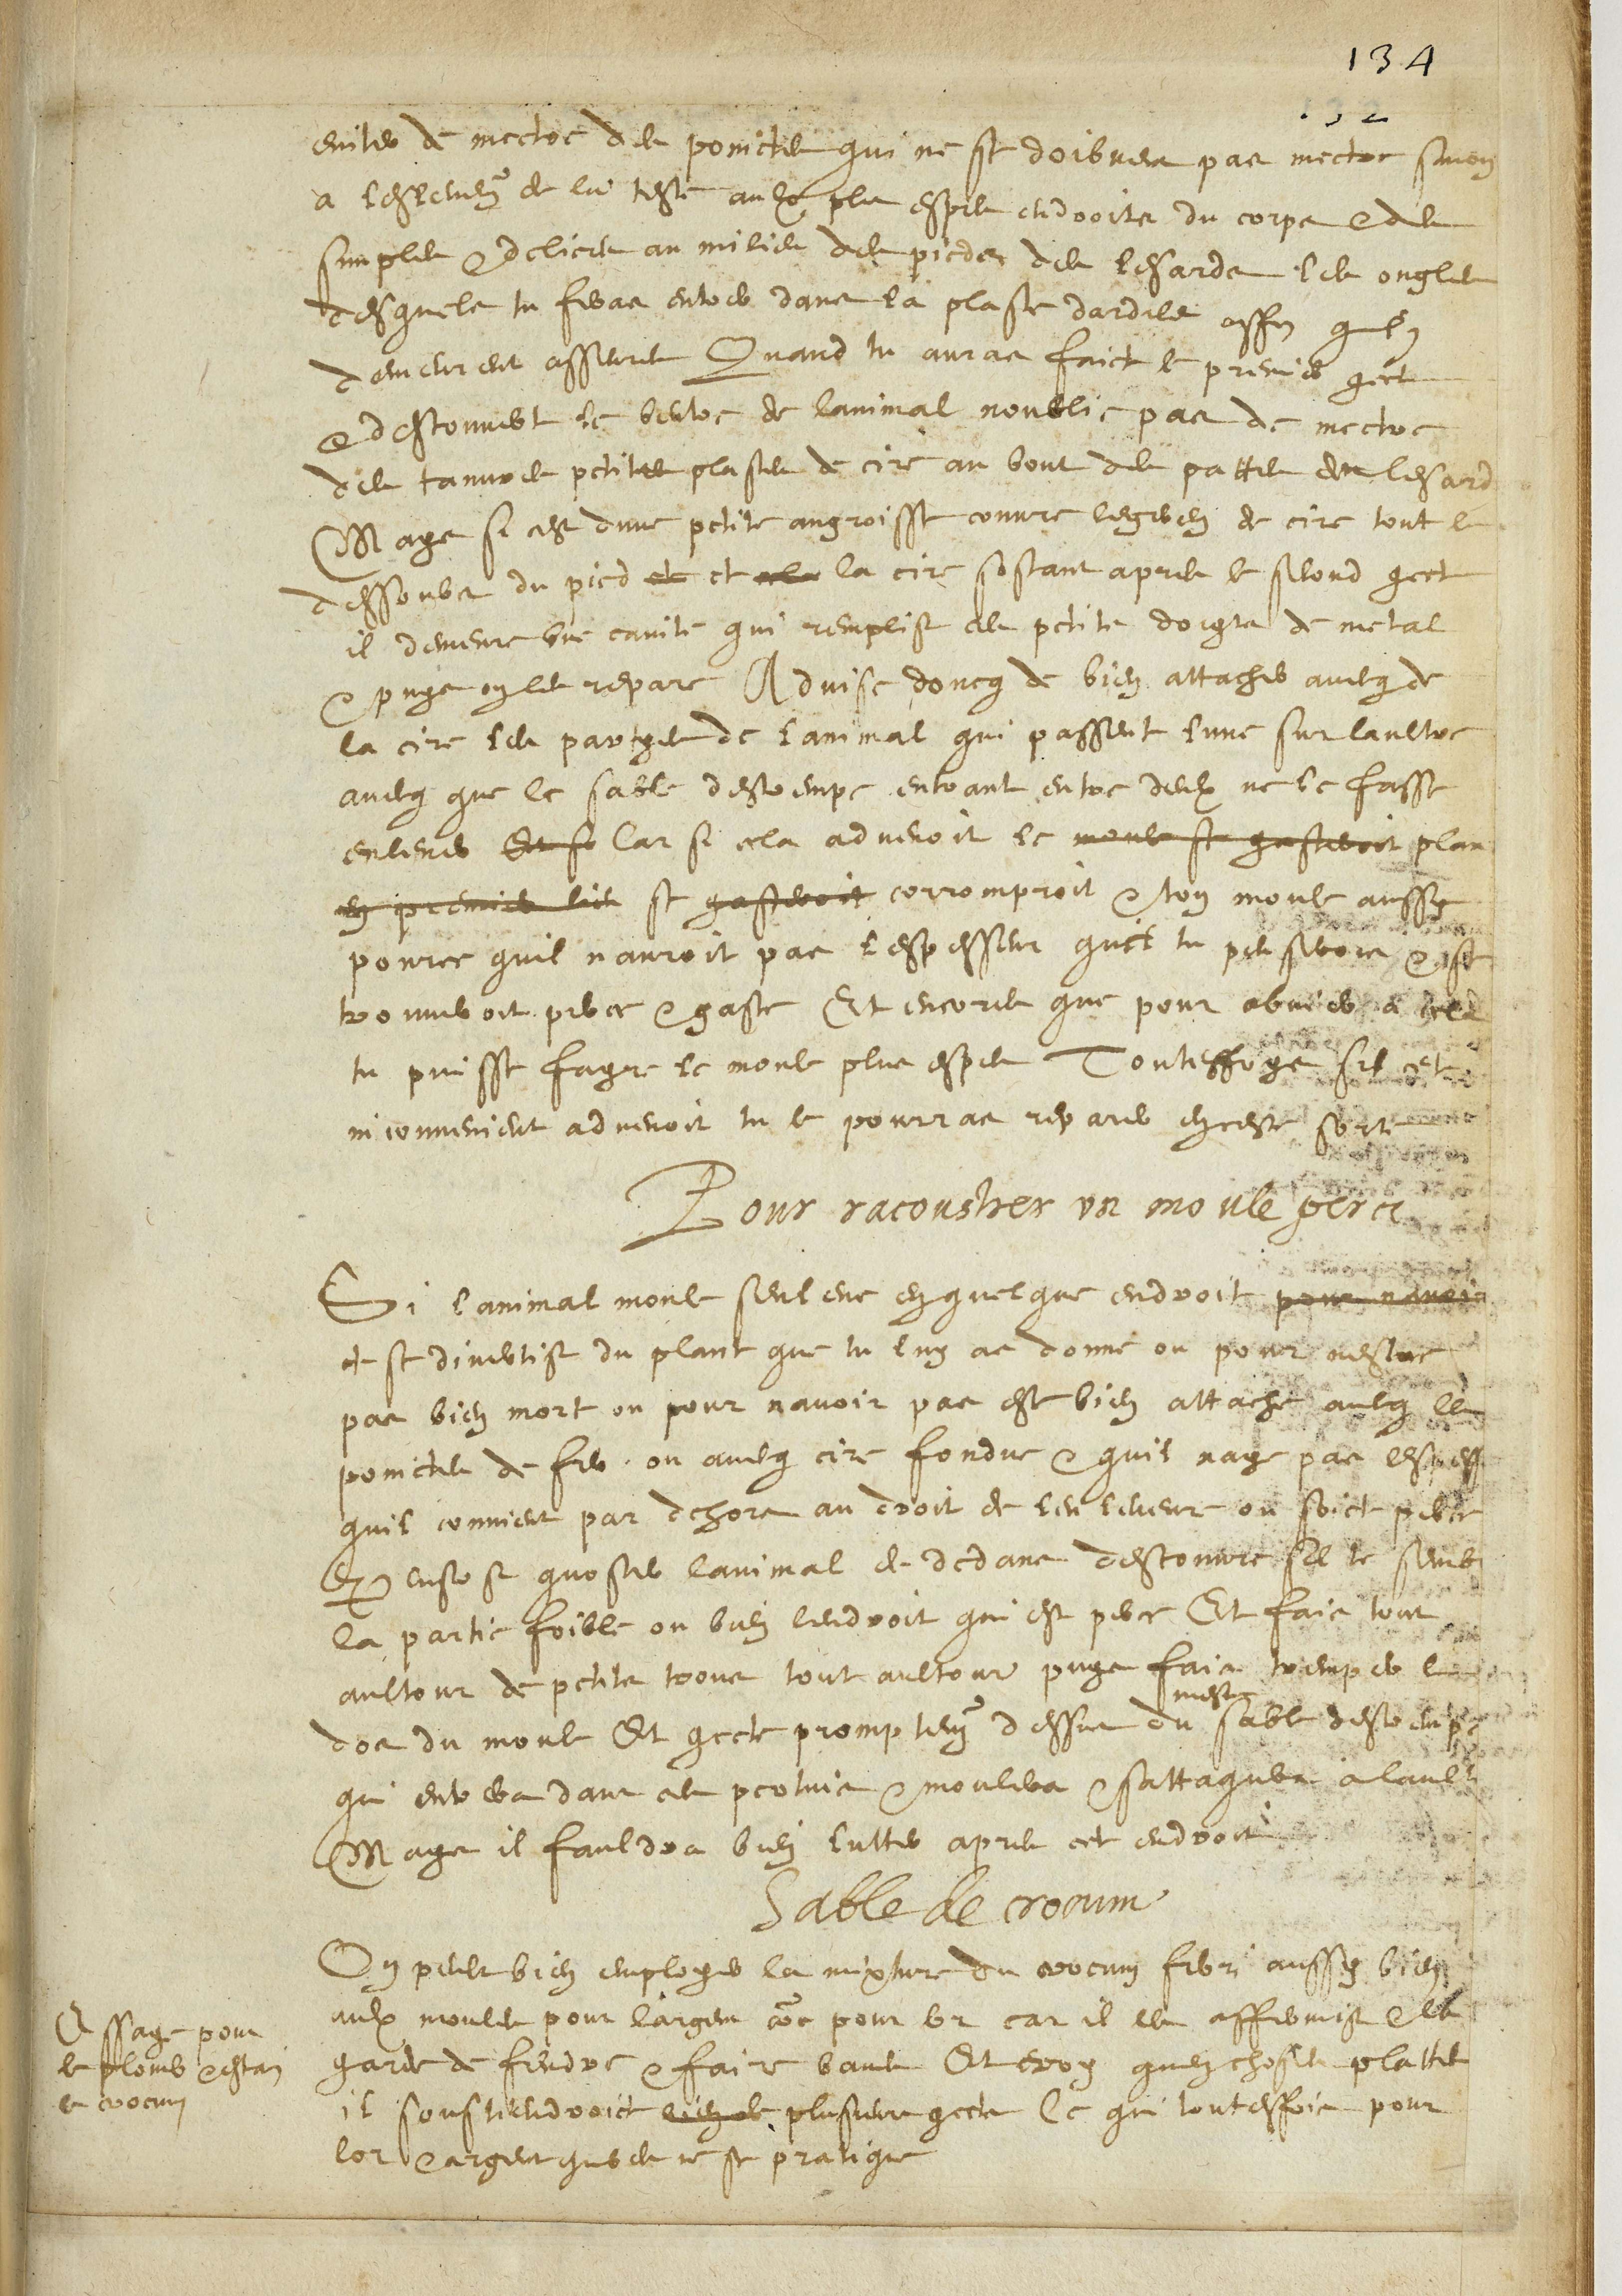 134
132
eviter de mectre des poinctes qui ne se doibvent pas mectre sinon
a lextremité de la teste aulx plus espes endroits du corps & des
simples & deliees au milieu des pieds des lesards les ongles
desquels tu feras entrer dans la plaste dardille affin quils
demeurent asseures Quand tu auras faict le premier gect
& descouvert le ventre de lanimal noublie pas de mectre
des tanvres petites plastes de cire au bout des pattes du lesard
Mays si cest dune petite angroisse couvre legerem de cire tout le
dessoubs du pied et et la cire sostant apres le second gect
il demeure une cavite qui remplist les petits doigts de metal
& puys on les repare Advise doncq de bien attacher avecq de
la cire les partyes de lanimal qui passent lune sur laultre
avecq que le sable destrempe entrant entre deulx ne le fasse
enlever Et si Car si cela advenoit le moule se gasteroit plan
en premier lieu se gasteroit corromproit & ton moule aussy
pource quil nauroit pas lespesseur que tu penserois & se
trouveroit perce & gaste Et encores que pour obvier a cela
tu puisse fayre le moule plus espes Touteffoys si cet
inconvenient advenoit tu le pourras reparer en ceste sorte
Pour racoustrer un moule perce
Si lanimal moule senleve en quelque endroit pour navoir
et se divertist du plant que tu luy as donne ou pour nestre
pas bien mort ou pour navoir pas este bien attache avecq les
poinctes de fer ou avecq cire fondue & quil naye pas lespess
quil convient par dehors au droit de lenleveure ou soict perce
lanimal de dedans descouvre sil te semble
la partie foible ou bien lendroit qui est perce Et fais tout
aultour de petits trous tout aultour puys fais tremper le
dos du moule Et gecte promptem dessus du sable destrempe
mesme
qui entrera dans les pertuis & moulera & sattaquera a laultre
Mays il fauldra bien lutter apres cet endroit
Sable de crocum
On peult bien employer la mixture du crocum ferri aussy bien
aulx moules pour largent coe pour or car il les affermist & les
garde de fendre & faire bave Et croy quen choses plattes
il soustiendroict plusieurs gects Ce qui touteffois pour
lor & argent gueres ne se pratique
Essaye pour
le plomb & estain
le crocum